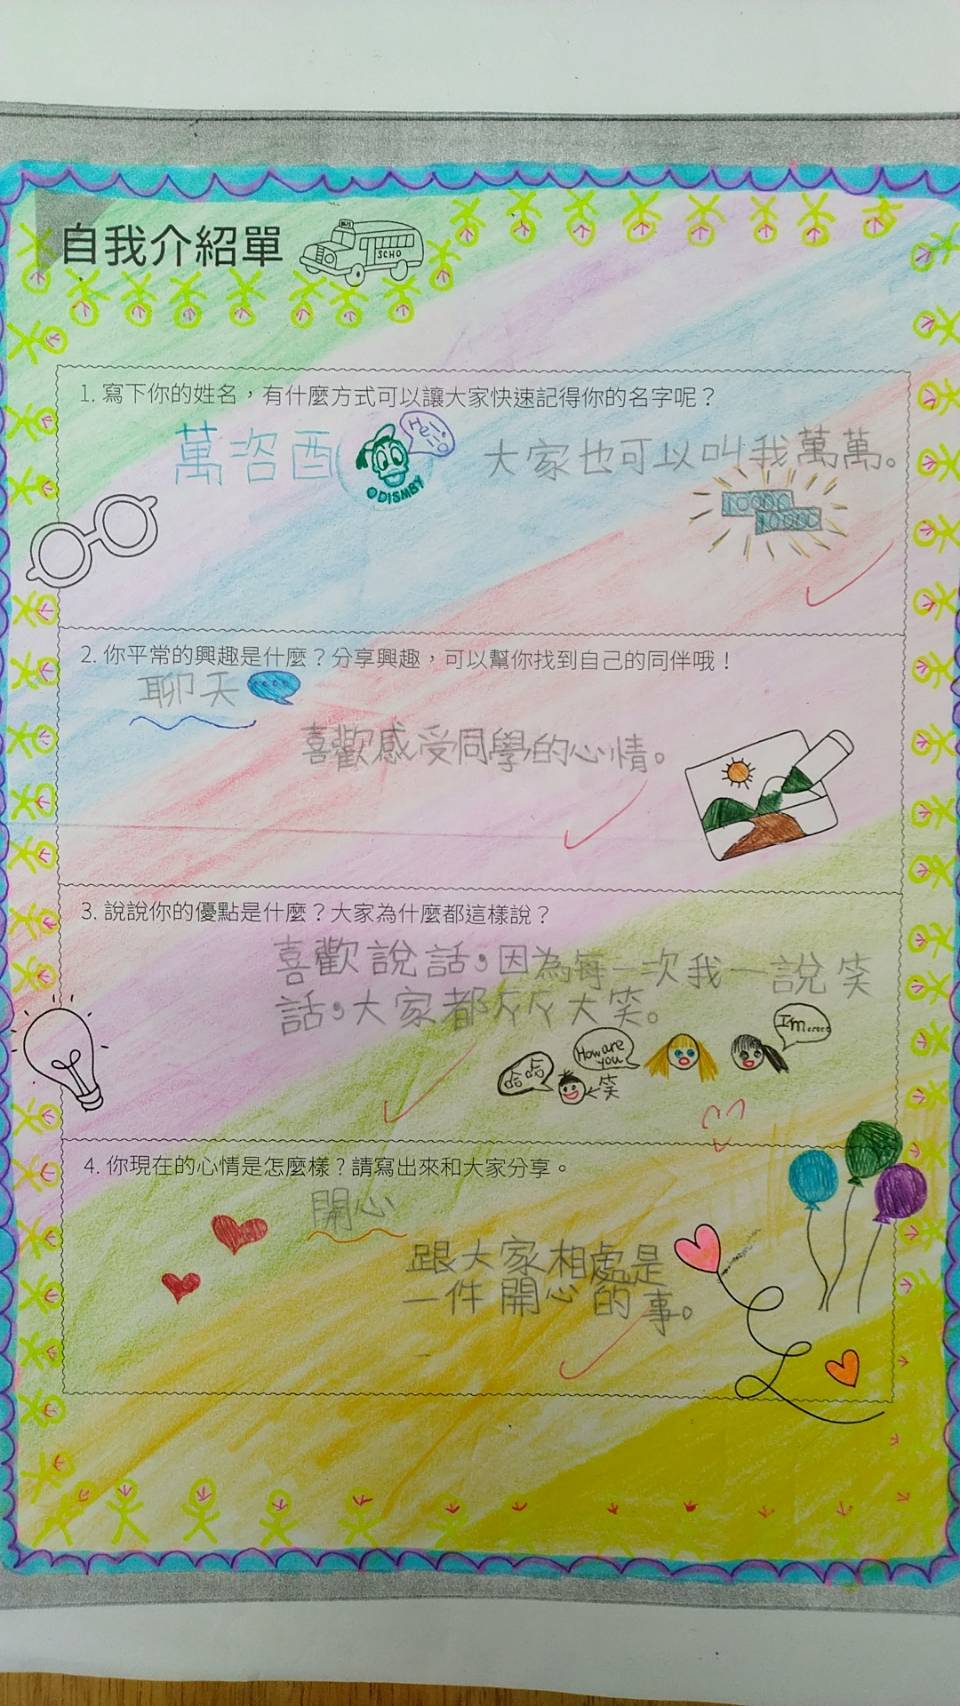 自我介紹單
SCHO
1. 寫下你的姓名，有什麼方式可以讓大家快速記得你的名字呢？
萬咨酉
Hello
©DISMBY
大家也可以叫我萬萬。
10000
10000
2. 你平常的興趣是什麼？分享興趣，可以幫你找到自己的同伴哦！
聊天
喜歡感受同學的心情。
3. 說說你的優點是什麼？大家為什麼都這樣說？
喜歡說話，因為每一次我一說笑
話，大家都ㄞㄞ大笑。
哈哈
How are
you
I'm......
笑
4. 你現在的心情是怎麼樣？請寫出來和大家分享。
開心
跟大家相處是
一件開心的事。